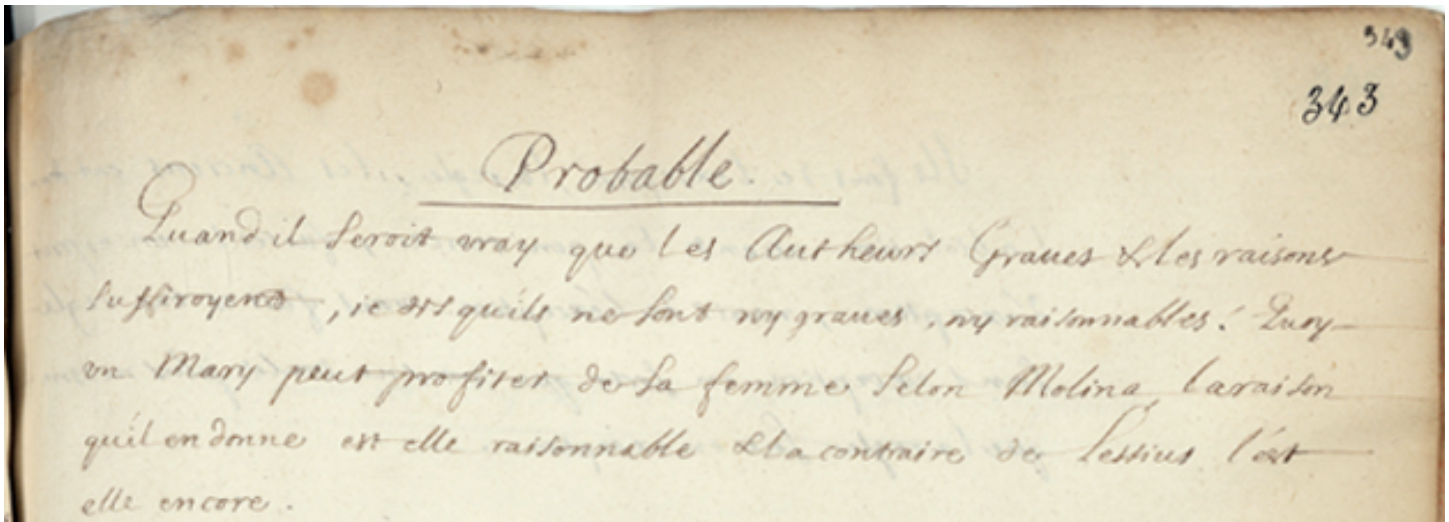 349
343
Probable.
Quand il seroit vray que les Autheurs Graues & les raisons
suffiroyent, ie dis quils ne sont ny graues, ny raisonnables. Quoy
vn Mary peut profiter de sa femme selon Molina, la raison
quil en donne est elle raisonnable & la contraire de Lessius l'est
elle encore.